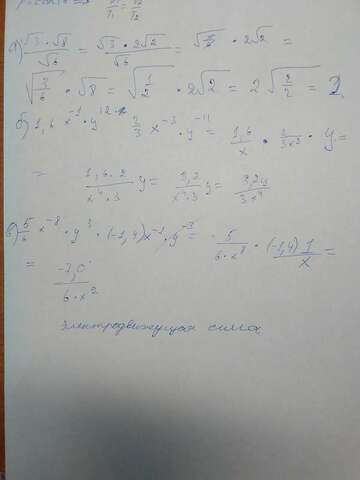 а) √3 · √8 / √6 = √3 · 2√2 / √6 = √(3/6) · 2√2 =
√(3/6) · √8 = √(1/2) · 2√2 = 2√(2/2) = 2
б) 1,6 x⁻¹ · y¹² · 2/3 x⁻³ · y⁻¹¹ = 1,6/x · 2/3x³ · y =
= 1,6 · 2 / x⁴ · 3 y = 3,2 / x⁴ · 3 y = 3,2y / 3x⁴
в) 5/6 x⁻⁸ · y³ · (-1,4) x⁻¹ · y⁻³ = 5 / 6 · x⁸ · (-1,4) 1/x =
= -7,0 / 6 · x⁹
Электродвижущая сила